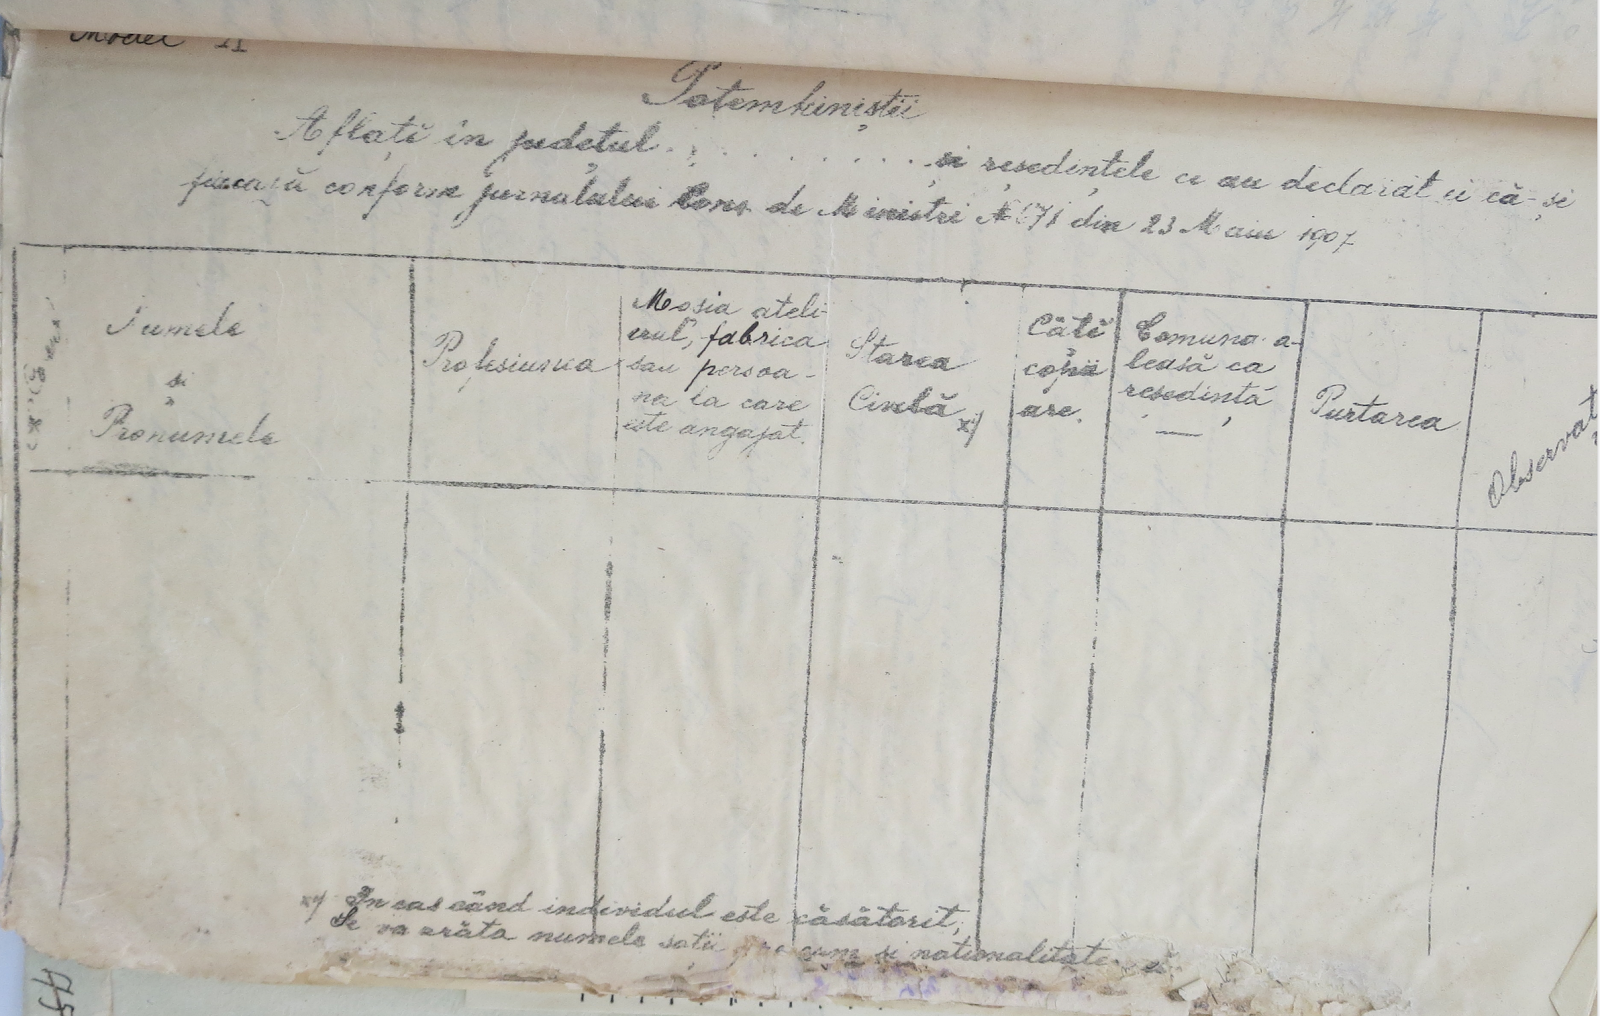 Model A
Potemkiniștii
Aflați în județul . . . . . . . . . și reședințele ce au declarat ei că-și
fixează conform jurnalului Cons. de Miniștri № 671 din 23 Maiu 1907
Numele
și
Pronumele
Profesiunea
Moșia ateli-
erul, fabrica
sau persoa-
na la care
este angajat.
Starea
Civilă x)
Câți
copii
are.
Comuna a-
leasă ca
resedință
Purtarea
Observat
x) În cas când individul este căsătorit,
Se va arăta numele soții precum și nationalitate